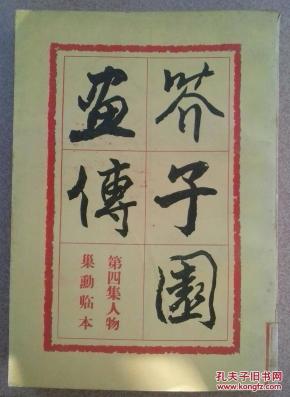 芥子園
畫傳
第四集人物
巢勳临本
孔夫子旧书网
KONGFZ.COM